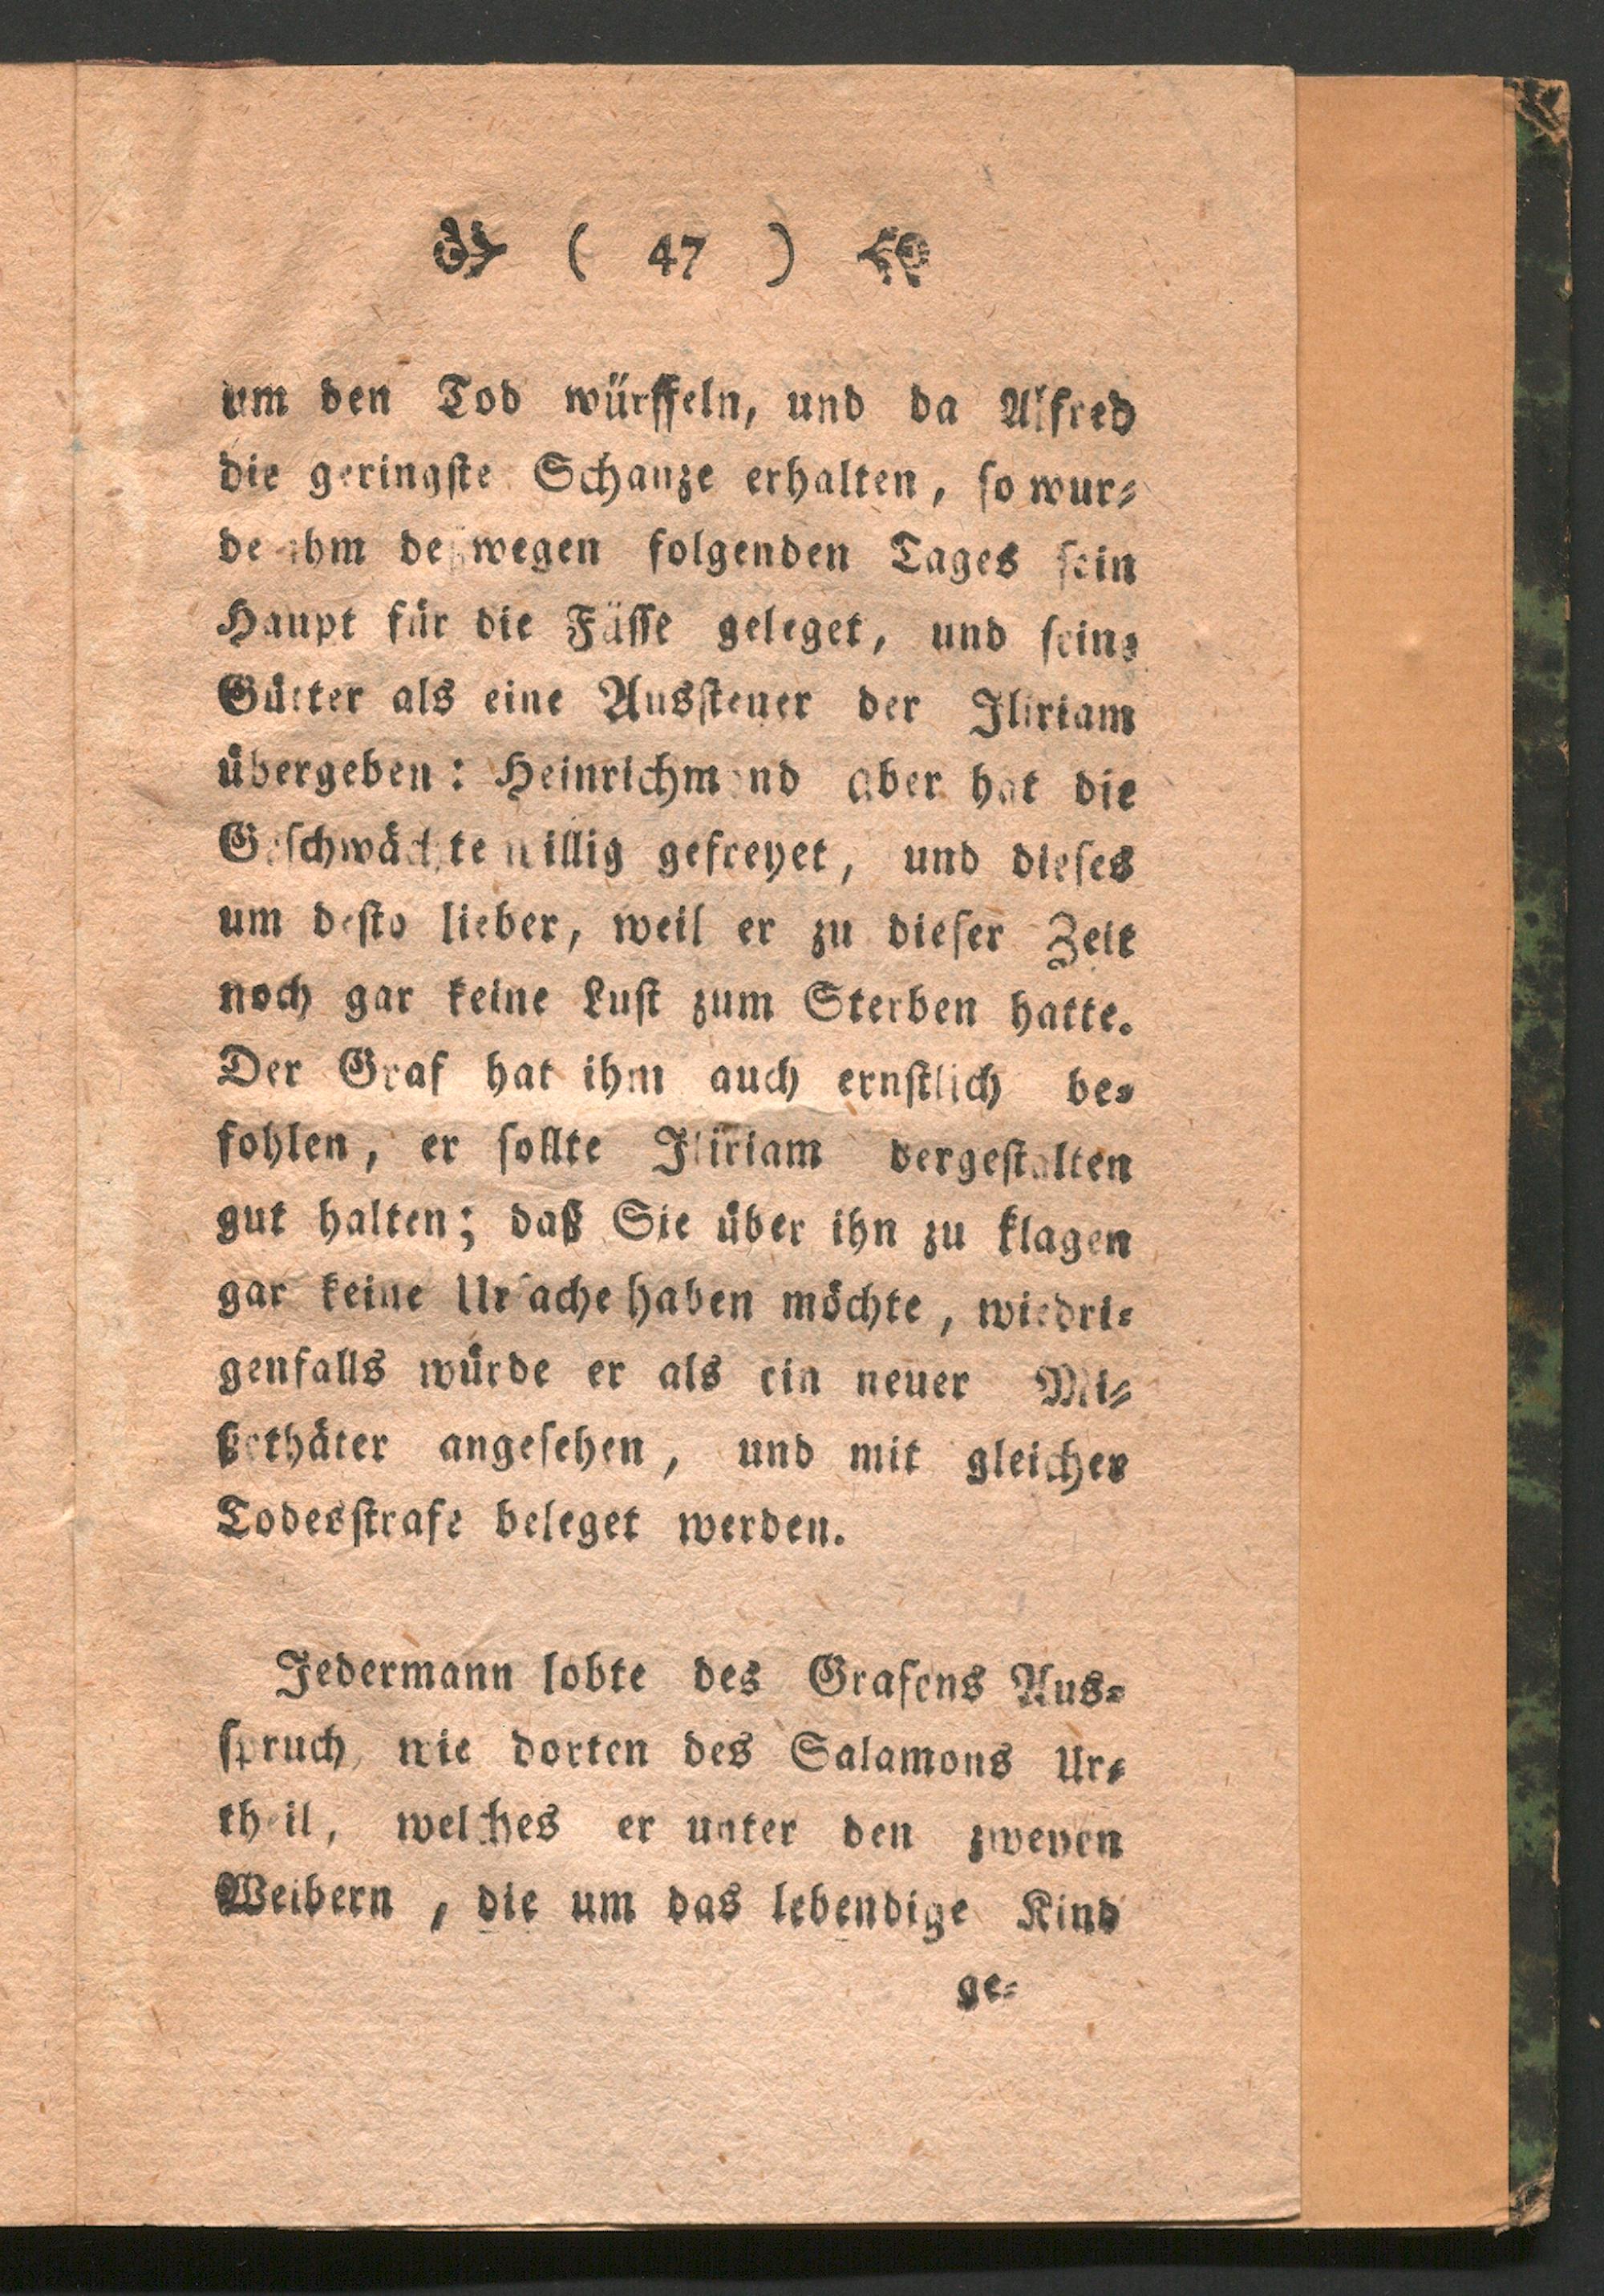 ( 47 )
um den Tod würffeln, und da Alfred
die geringste Schanze erhalten, so wur-
de ihm deßwegen folgenden Tages sein
Haupt für die Füsse geleget, und seine
Gütter als eine Aussteuer der Iliriam
übergeben: Heinrichmond aber hat die
Geschwächte willig gefreyet, und dieses
um desto lieber, weil er zu dieser Zeit
noch gar keine Lust zum Sterben hatte.
Der Graf hat ihm auch ernstlich be-
fohlen, er sollte Iliriam dergestalten
gut halten; daß Sie über ihn zu klagen
gar keine Ursache haben möchte, wiedri-
genfalls würde er als ein neuer Mi-
ßethäter angesehen, und mit gleicher
Todesstrafe beleget werden.
Jedermann lobte des Grafens Aus-
spruch, wie dorten des Salamons Ur-
theil, welches er unter den zweyen
Weibern, die um das lebendige Kind
ge-